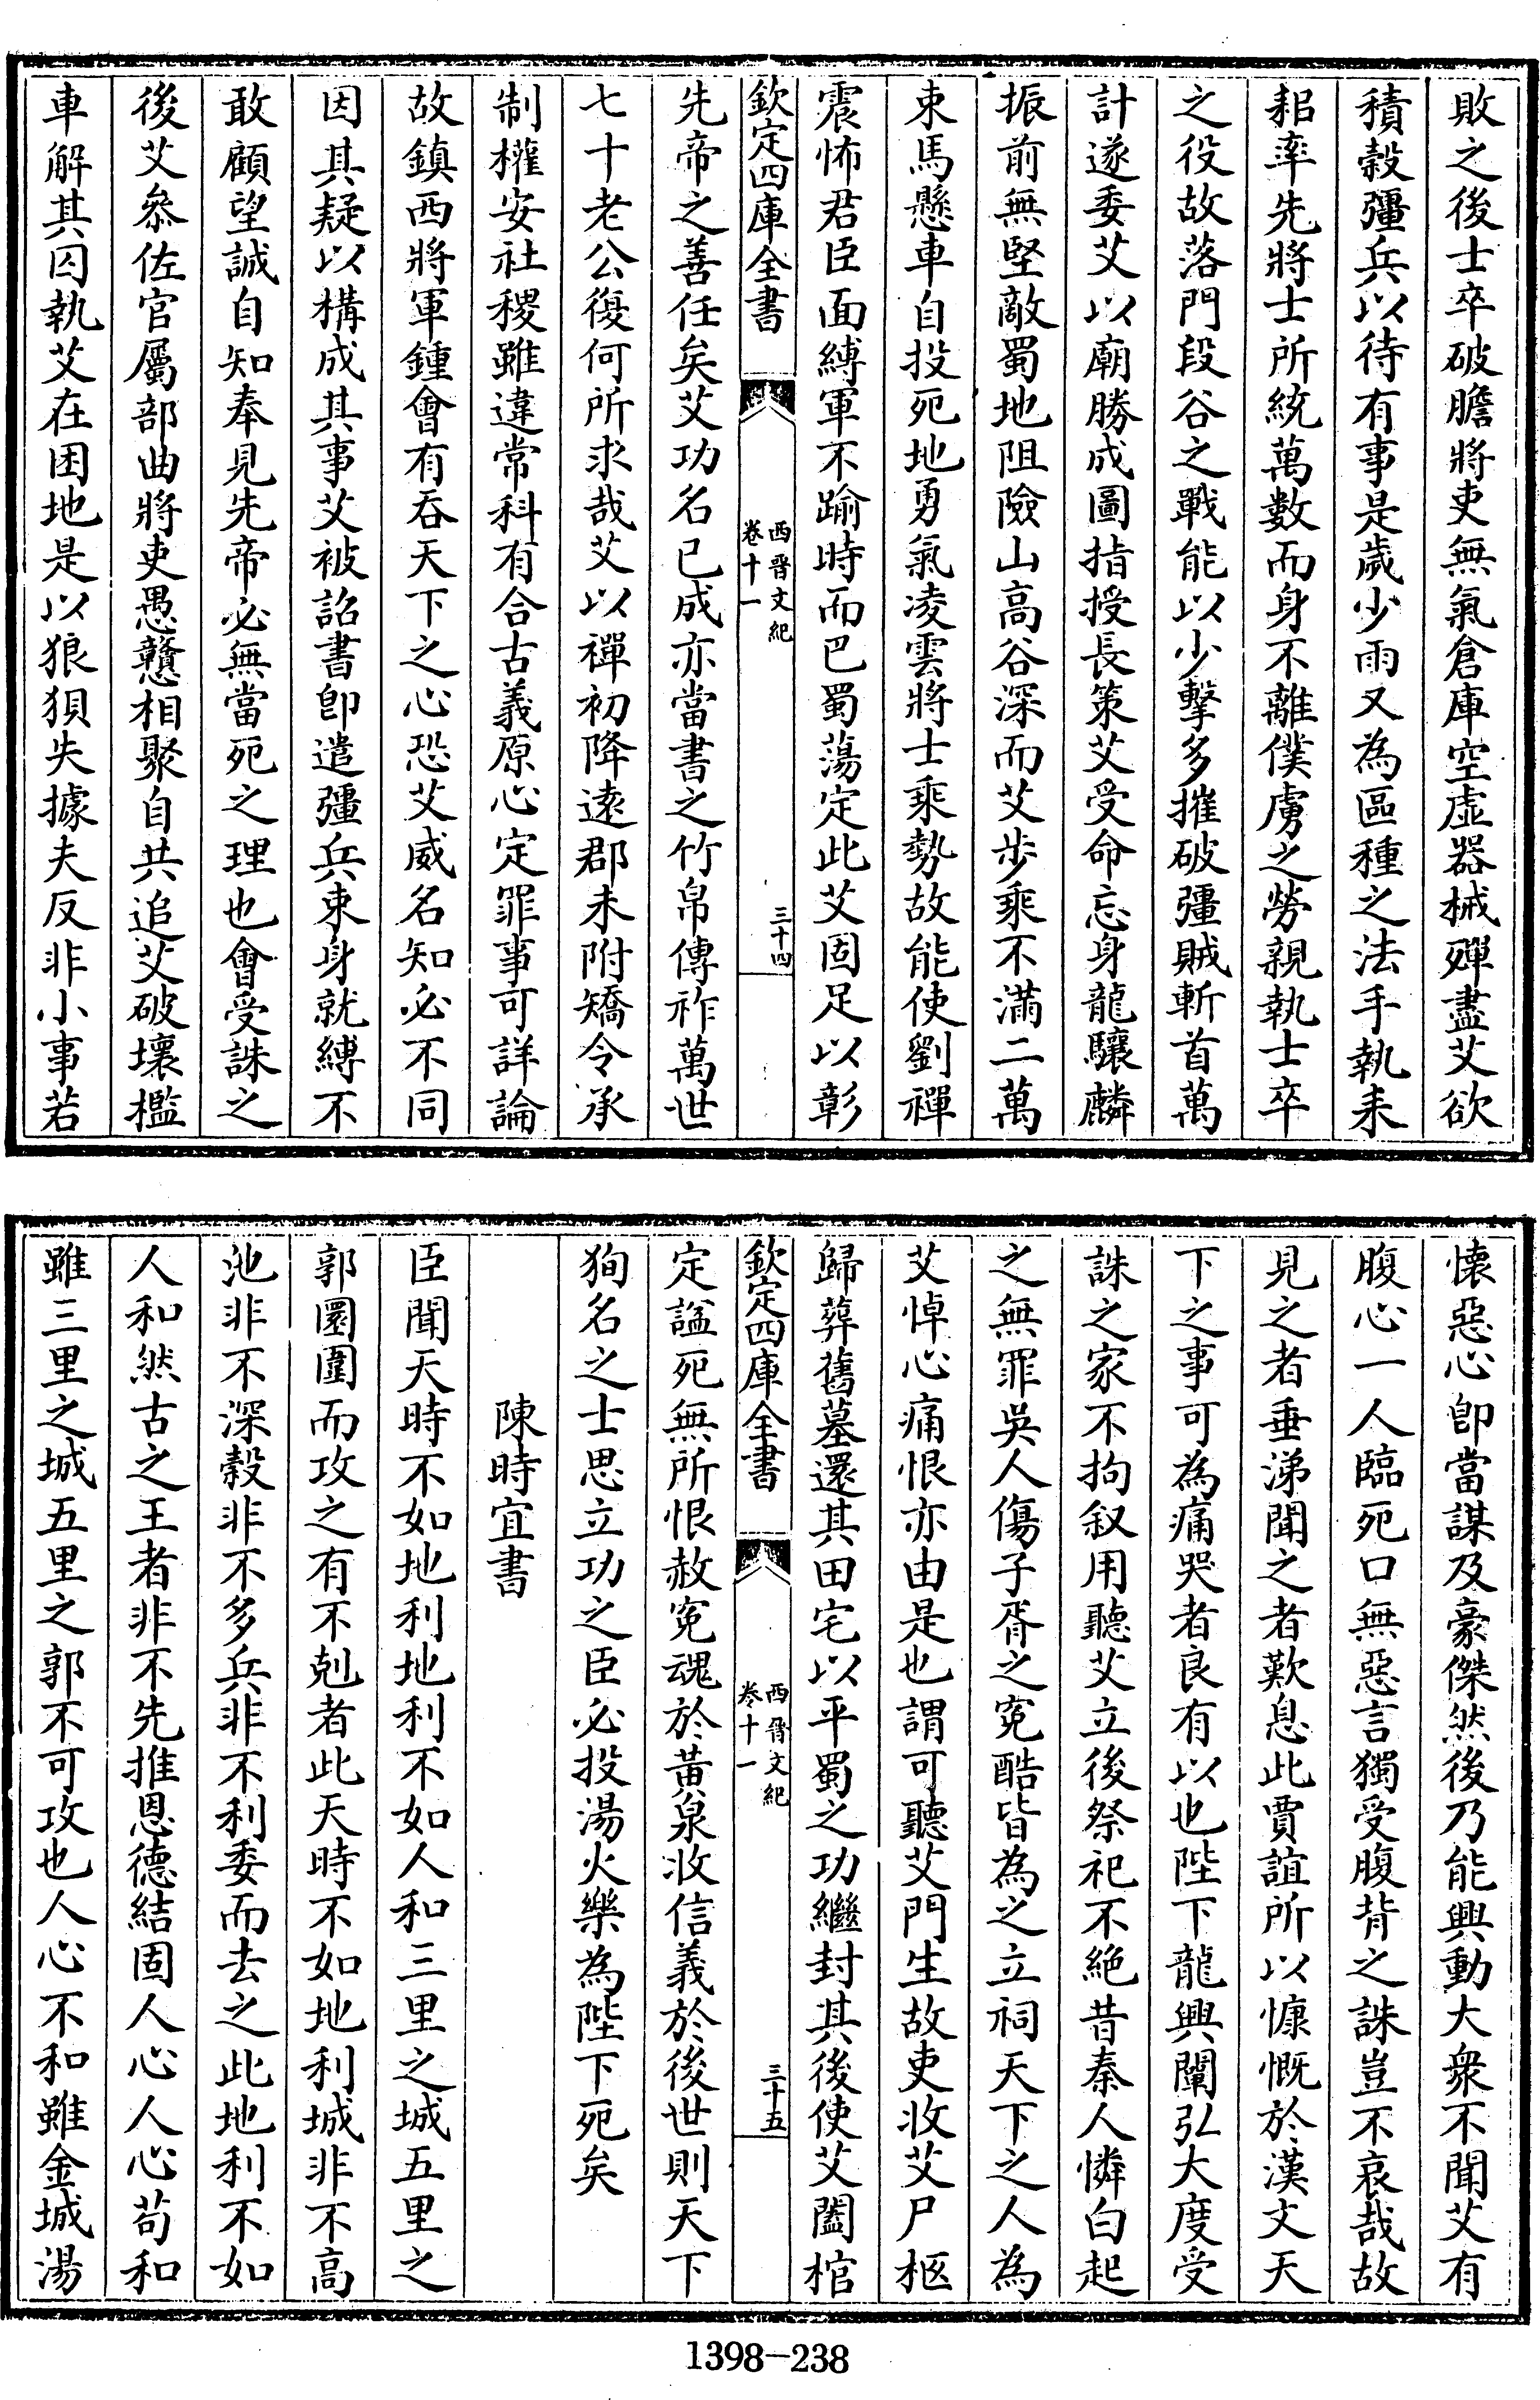 敗之後士卒破膽將吏無氣倉庫空虛器械殫盡艾欲
積穀彊兵以待有事是歲少雨又為區種之法手執耒
耜率先將士所統萬數而身不離僕虜之勞親執士卒
之役故落門段谷之戰能以少擊多摧破彊賊斬首萬
計遂委艾以廟勝成圖指授長策艾受命忘身龍驤麟
振前無堅敵蜀地阻險山高谷深而艾步乘不滿二萬
束馬懸車自投死地勇氣凌雲將士乘勢故能使劉禪
震怖君臣面縛軍不踰時而巴蜀蕩定此艾固足以彰
欽定四庫全書
西晉文紀
卷十一
三十四
先帝之善任矣艾功名已成亦當書之竹帛傳祚萬世
七十老公復何所求哉艾以禪初降遠郡未附矯令承
制權安社稷雖違常科有合古義原心定罪事可詳論
故鎮西將軍鍾會有吞天下之心恐艾威名知必不同
因其疑以構成其事艾被詔書卽遣彊兵束身就縛不
敢顧望誠自知奉見先帝必無當死之理也會受誅之
後艾叅佐官屬部曲將吏愚戇相聚自共追艾破壞檻
車解其囚執艾在困地是以狼狽失據夫反非小事若
懷惡心卽當謀及豪傑然後乃能興動大衆不聞艾有
腹心一人臨死口無惡言獨受腹背之誅豈不哀哉故
見之者垂涕聞之者歎息此賈誼所以慷慨於漢文天
下之事可為痛哭者良有以也陛下龍興闡弘大度受
誅之家不拘叙用聽艾立後祭祀不絶昔秦人憐白起
之無罪吳人傷子胥之寃酷皆為之立祠天下之人為
艾悼心痛恨亦由是也謂可聽艾門生故吏收艾尸柩
歸葬舊墓還其田宅以平蜀之功繼封其後使艾闔棺
欽定四庫全書
西晉文紀
卷十一
三十五
定諡死無所恨赦寃魂於黄泉收信義於後世則天下
狥名之士思立功之臣必投湯火樂為陛下死矣
陳時宜書
臣聞天時不如地利地利不如人和三里之城五里之
郭圜圍而攻之有不剋者此天時不如地利城非不高
池非不深穀非不多兵非不利委而去之此地利不如
人和然古之王者非不先推恩德結固人心人心苟和
雖三里之城五里之郭不可攻也人心不和雖金城湯
1398-238